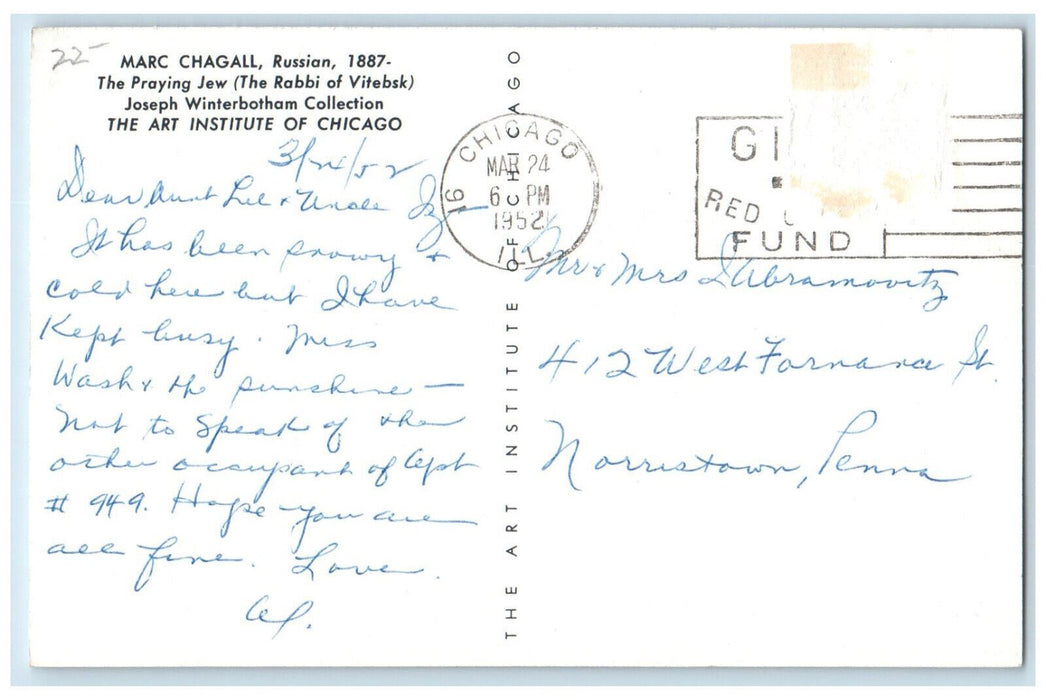 22
MARC CHAGALL, Russian, 1887-
The Praying Jew (The Rabbi of Vitebsk)
Joseph Winterbotham Collection
THE ART INSTITUTE OF CHICAGO
3/24/52
Dear Aunt Lil & Uncle Iz,
It has been snowy &
cold here but I have
Kept busy. Miss
Wash & the sunshine —
Not to speak of the
other occupant of Apt
# 949. Hope you are
all fine. Love.
Al.
THE ART INSTITUTE OF CHICAGO
CHICAGO
16
MAR 24
6 PM
1952
ILL.
GI
RED C
FUND
Mr & Mrs I Abramovitz
412 West Fornance St.
Norristown, Penna